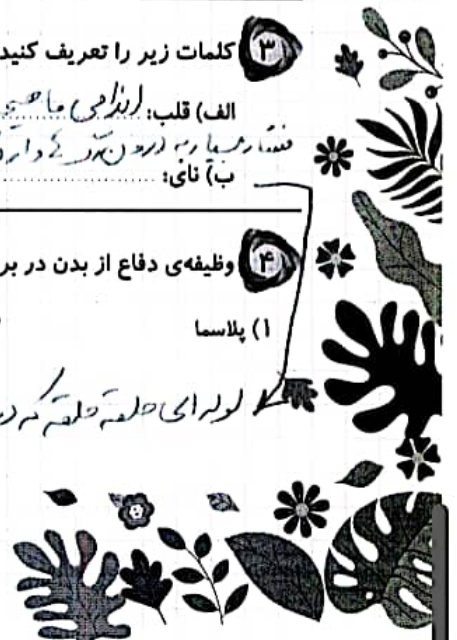 ۳ کلمات زیر را تعریف کنید
الف) قلب: اندامی ماهیچه
فشار بسیار به درون وارد
ب) نای:
۴ وظیفه‌ی دفاع از بدن در بر
۱) پلاسما
لوله‌ای حلقه حلقه که در